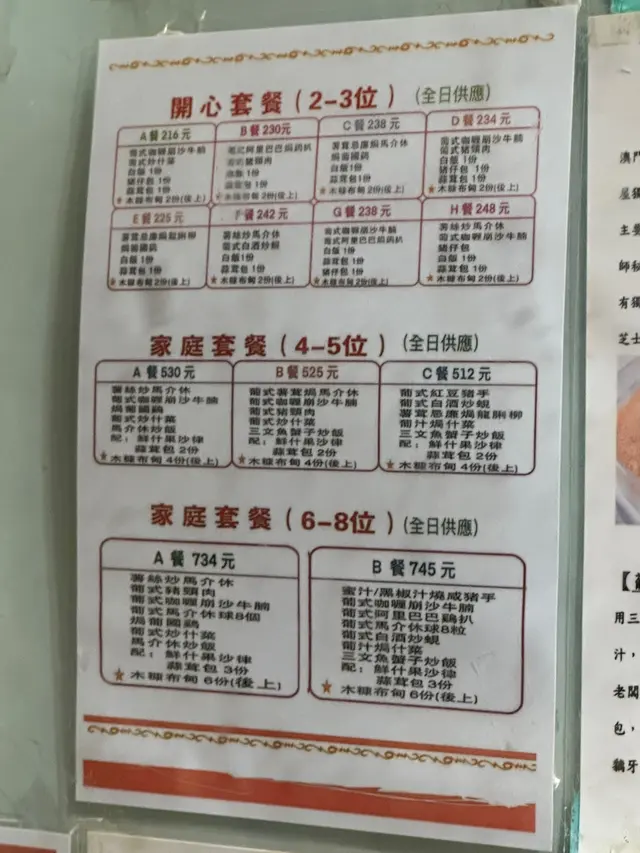 開心套餐(2-3位)(全日供應)
A 餐 216 元
葡式咖喱崩沙牛腩
葡式炒什菜
白飯 1份
豬仔包 1份
蒜茸包 1份
★木糠布甸 2份(後上)
B 餐 230元
葡式阿里巴巴焗鷄扒
豬頸肉
1份
1份
木糠布甸 2份(後上)
C 餐 238 元
薯茸忌廉焗馬介休
焗葡國鷄
白飯1份
蒜茸包 1份
★木糠布甸 2份(後上)
D 餐 234 元
葡式咖喱崩沙牛腩
葡式豬頸肉
白飯 1份
豬仔包 1份
蒜茸包 1份
★木糠布甸 2份(後上)
E 餐 225 元
薯茸忌廉焗龍脷柳
焗葡國鷄
白飯 1份
蒜茸包 1份
★木糠布甸 2份(後上)
F 餐 242 元
薯絲炒馬介休
葡式白酒炒蜆
白飯 1份
蒜茸包 1份
★木糠布甸 2份(後上)
G 餐 238 元
葡式咖喱崩沙牛腩
葡式阿里巴巴焗鷄扒
白飯 1份
蒜茸包 1份
豬仔包 1份
★木糠布甸 2份(後上)
H 餐 248 元
薯絲炒馬介休
葡式咖喱崩沙牛腩
豬仔包
白飯 1份
蒜茸包 1份
★木糠布甸 2份(後上)
家庭套餐(4-5位)(全日供應)
A 餐 530 元
薯絲炒馬介休
葡式咖喱崩沙牛腩
焗葡國鷄
葡式炒什菜
馬介休炒飯
配：鮮什果沙律
蒜茸包 2份
★木糠布甸 4份(後上)
B 餐 525 元
葡式薯茸焗馬介休
葡式咖喱崩沙牛腩
葡式豬頸肉
葡式炒什菜
三文魚蟹子炒飯
配：鮮什果沙律
蒜茸包 2份
★木糠布甸 4份(後上)
C 餐 512 元
葡式紅豆豬手
葡式白酒炒蜆
薯茸忌廉焗龍脷柳
葡汁焗什菜
三文魚蟹子炒飯
配：鮮什果沙律
蒜茸包 2份
★木糠布甸 4份(後上)
家庭套餐(6-8位)(全日供應)
A 餐 734 元
薯絲炒馬介休
葡式豬頸肉
葡式咖喱崩沙牛腩
葡式馬介休球8個
焗葡國鷄
葡式炒什菜
馬介休炒飯
配：鮮什果沙律
蒜茸包 3份
★木糠布甸 6份(後上)
B 餐 745元
蜜汁/黑椒汁燒咸豬手
葡式咖喱崩沙牛腩
葡式阿里巴巴鷄扒
葡式馬介休球8粒
葡式白酒炒蜆
葡汁焗什菜
三文魚蟹子炒飯
配：鮮什果沙律
蒜茸包 3份
★木糠布甸 6份(後上)
澳門
屋獨
主要
師秘
有獨
芝士
用三
汁，
老闆
包，
鵝牙